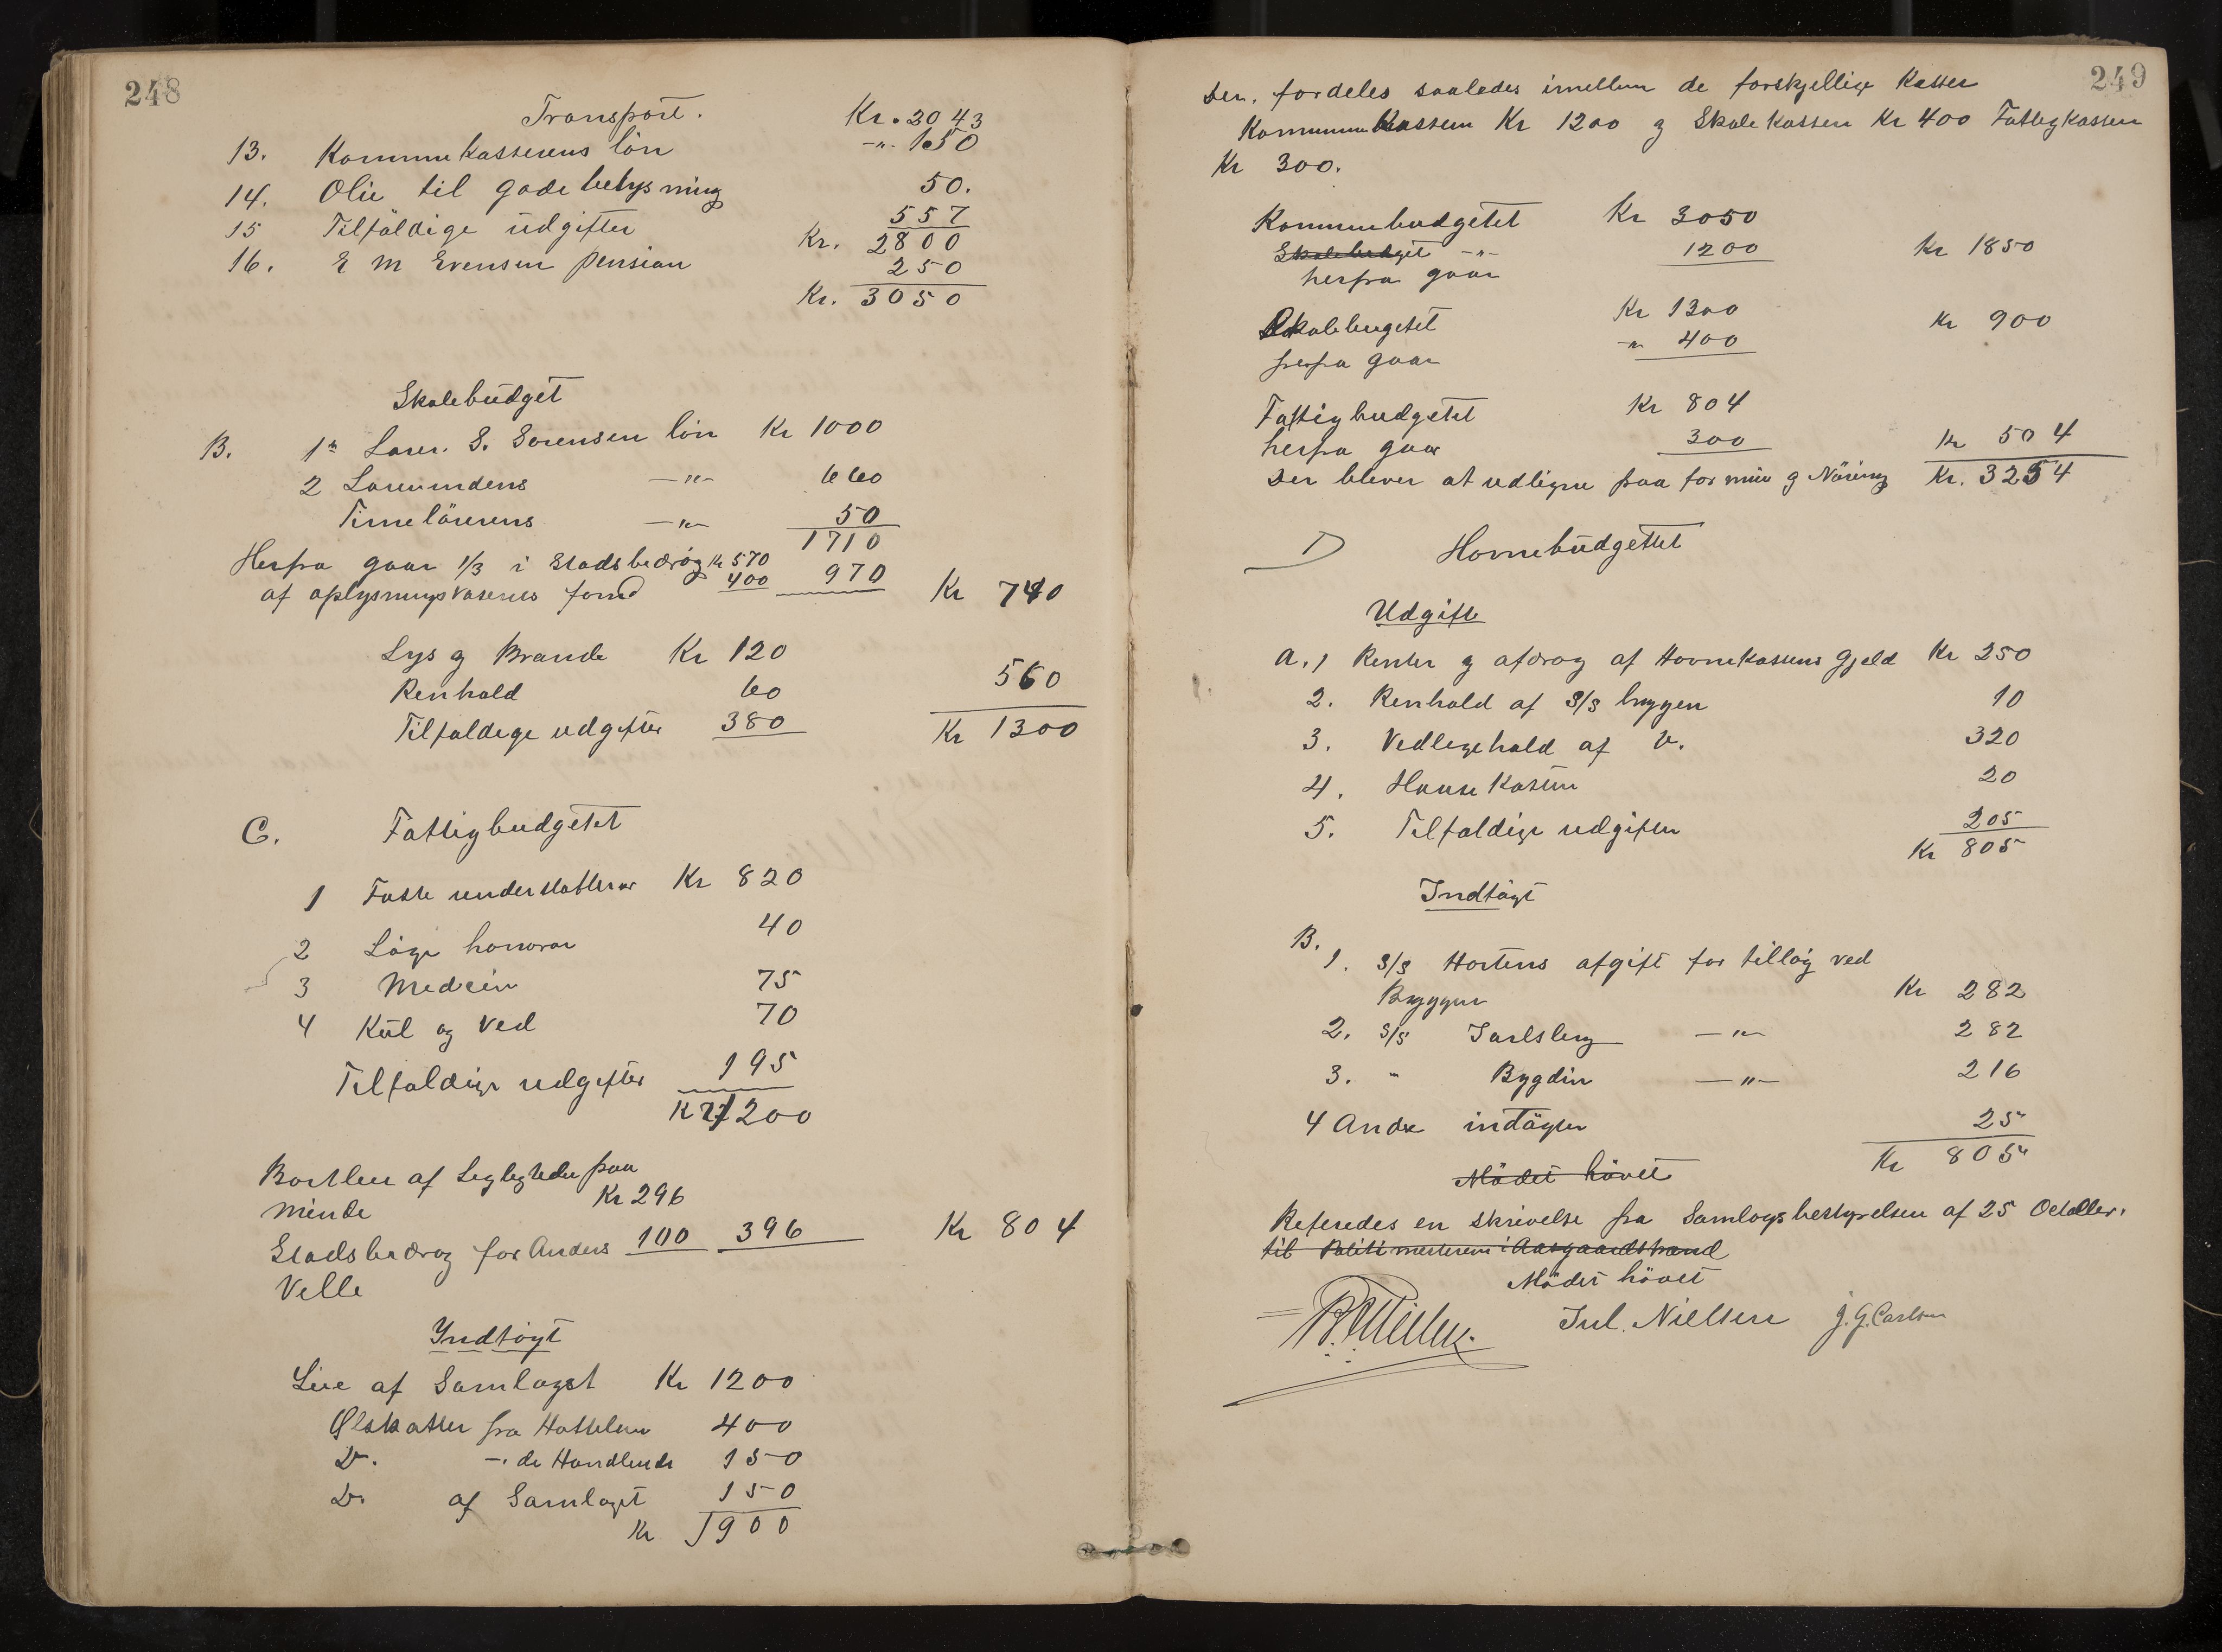 248
Transport. Kr. 2043
13. Kommunekasserens lön -"- 150
14. Olie til gadebelysning 50.
15 Tilfäldige udgifter 557
Kr. 2800
16. E M Evensen pension 250
Kr. 3050
Skolebudget
B. 1 Lærer. S. Sorensen lön Kr 1000
2 Lærerindens -"- 660
Timelärerens -"- 50
1710
Herfra gaar 1/3 i Stadsbedrag Kr 570
af oplysningsvæsenes fond 400 970 Kr 740
Lys og Brænde Kr 120
Renhold 60 560
Tilfaldige udgifter 380 Kr 1300
C. Fattigbudgetet
1 Faste understøttelser Kr 820
2 Läge honorar 40
3 Medicin 75
4 Kul og Ved 70
Tilfaldige udgifter 195
Kr 1200
Bortleie af Leyligheder paa
Minde Kr 296
Stadsbedrag for Anders 100 396 Kr 804
Velle
Indtägt
Leie af Samlaget Kr 1200
Ølskatter fra Hottelene 400
Do. -. de Handlende 150
Do. af Samlaget 150
Kr 1900
249
Der. fordeles saaledes imellem de forskjellige Kasser
Kommunekassen Kr 1200 og Skolekassen Kr 400 Fattigkassen
Kr 300.
Kommunebudgetet Kr 3050
Skolebudget -"-
herfra gaar 1200 Kr 1850
Skolebugetet Kr 1300
herfra gaar -"- 400 Kr 900
Fattigbudgetet Kr 804
herfra gaar 300 Kr 504
Der bliver at udligne paa formue og Näring Kr. 3254
D Havnebudgettet
Udgift
A. 1 Renter og afdrag af Havnekassens Gjeld Kr 250
2. Renhold af S/S bryggen 10
3. Vedligehold af Do. 320
4. Havnekassen 20
5. Tilfaldige udgifter 205
Kr 805
Indtägt
B.
1. S/S Hortens afgift for tilläg ved
Bryggen Kr 282
2. S/S Jarlsberg -"- 282
3. " Bygdin -"- 216
4 Andre indtägter 25
Kr 805
Mödet hävet
Referedes en skrivelse fra Samlagsbestyrelsen af 25 October.
til Politimesteren i Aasgaardstrand
Mödet hävet
Jul. Nielsen J. G. Carlsen